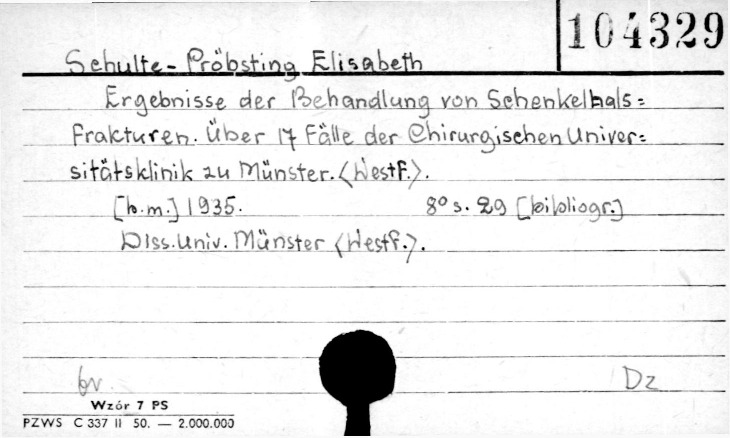 104329
Schulte-Pröbsting Elisabeth
Ergebnisse der Behandlung von Schenkelhals=
frakturen. Über 17 Fälle der Chirurgischen Univer=
sitätsklinik zu Münster. <Westf.>.
[b.m.] 1935. 8° s. 29 [bibliogr.]
Diss. Univ. Münster <Westf.>.
br. Dz
Wzór 7 PS
PZWS C 337 II 50. — 2.000.000